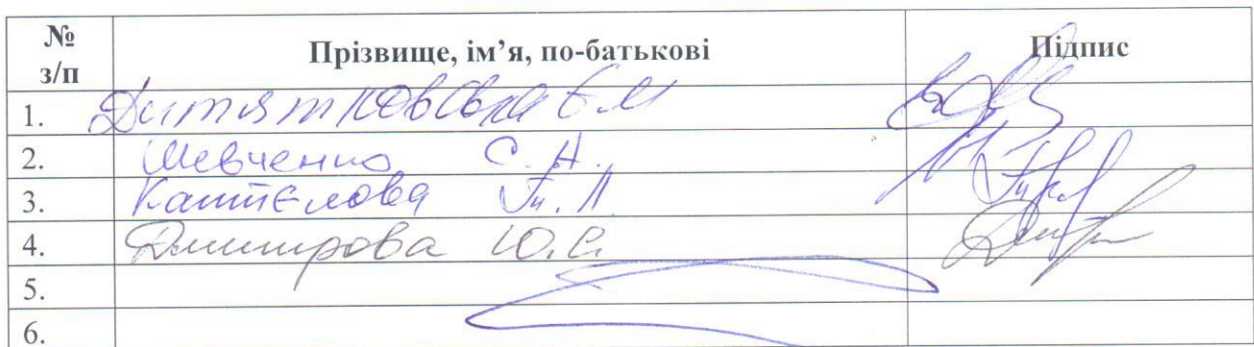 № з/п Прізвище, ім’я, по-батькові Підпис
1. Дитятковська Є.М
2. Шевченко С.А.
3. Л.
4. Дмитрова Ю.С.
5.
6.